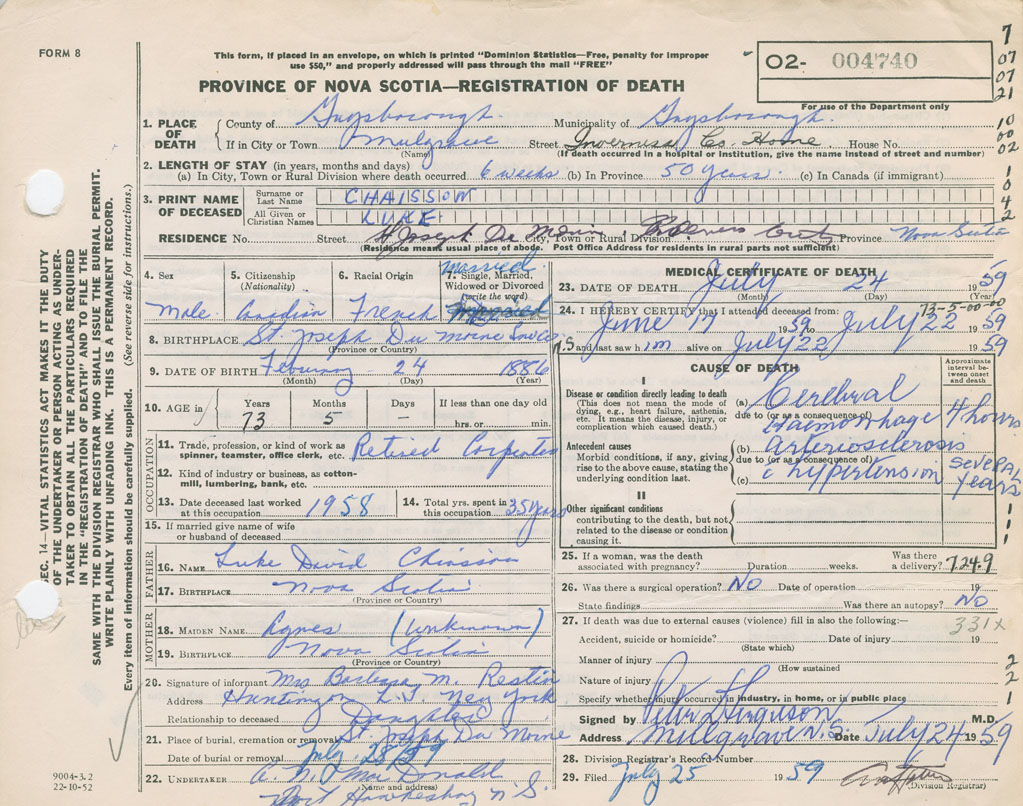 FORM 8
This form, if placed in an envelope, on which is printed "Dominion Statistics—Free, penalty for improper
use $50," and properly addressed will pass through the mail "FREE"
PROVINCE OF NOVA SCOTIA—REGISTRATION OF DEATH
02- 004740
For use of the Department only
7
07
07
21
10
00
02
1
0
4
2
SEC. 14—VITAL STATISTICS ACT MAKES IT THE DUTY
OF THE UNDERTAKER OR PERSON ACTING AS UNDER-
TAKER TO OBTAIN ALL THE PARTICULARS REQUIRED
IN THE "REGISTRATION OF DEATH" AND TO FILE THE
SAME WITH THE DIVISION REGISTRAR WHO SHALL ISSUE THE BURIAL PERMIT.
WRITE PLAINLY WITH UNFADING INK. THIS IS A PERMANENT RECORD.
Every item of information should be carefully supplied. (See reverse side for instructions.)
1. PLACE OF DEATH
County of Guysborough Municipality of Guysborough
If in City or Town Mulgrave Street Inverness Co. Home House No.
(Name) (If death occurred in a hospital or institution, give the name instead of street and number)
2. LENGTH OF STAY (in years, months and days)
(a) In City, Town or Rural Division where death occurred 6 weeks (b) In Province 50 years. (c) In Canada (if immigrant)
3. PRINT NAME OF DECEASED
Surname or Last Name CHAISSON
All Given or Christian Names LUKE
RESIDENCE No. Street St Joseph Du Moine City, Town or Rural Division Inverness County Province Nova Scotia
(Residence means usual place of abode. Post Office Address for residents in rural parts not sufficient)
4. Sex
Male
5. Citizenship
(Nationality)
Canadian
6. Racial Origin
French
7. Single, Married,
Widowed or Divorced
(write the word)
Married
8. BIRTHPLACE St. Joseph Du Moine Inv Co
(Province or Country)
9. DATE OF BIRTH February - 24 1886
(Month) (Day) (Year)
10. AGE in Years Months Days If less than one day old
73 5 - hrs. or min.
OCCUPATION
11. Trade, profession, or kind of work as
spinner, teamster, office clerk, etc. Retired Carpenter
12. Kind of industry or business, as cotton-
mill, lumbering, bank, etc.
13. Date deceased last worked
at this occupation 1958
14. Total yrs. spent in
this occupation 35 years
15. If married give name of wife
or husband of deceased
FATHER
16. NAME Luke David Chiasson
17. BIRTHPLACE Nova Scotia
(Province or Country)
MOTHER
18. MAIDEN NAME Agnes (Unknown)
19. BIRTHPLACE Nova Scotia
(Province or Country)
20. Signature of informant Mrs Barbara M. Restin
Address Huntington L.I. New York
Relationship to deceased Daughter
21. Place of burial, cremation or removal St Joseph Du Moine
Date of burial or removal July 28/59
22. UNDERTAKER A. N. MacDonald
(Name and address)
Port Hawkesbury N.S.
9004-3.2
22-10-52
MEDICAL CERTIFICATE OF DEATH
23. DATE OF DEATH July 24 1959
(Month) (Day) (Year)
73-5-00-00
24. I HEREBY CERTIFY that I attended deceased from:
June 17 1959 to July 22 1959
and last saw him alive on July 22 1959
CAUSE OF DEATH
Approximate
interval be-
tween onset
and death
I
Disease or condition directly leading to death
(This does not mean the mode of
dying, e.g., heart failure, asthenia,
etc. It means the disease, injury, or
complication which caused death.)
(a) Cerebral
due to (or as a consequence of)
Haemorrhage 4 hours
Antecedent causes
Morbid conditions, if any, giving
rise to the above cause, stating the
underlying condition last.
(b) arteriosclerosis
due to (or as a consequence of)
(c) c hypertension several years
II
Other significant conditions
contributing to the death, but not
related to the disease or condition
causing it.
1
1
1
25. If a woman, was the death
associated with pregnancy? Duration weeks. Was there
a delivery? 724.9
26. Was there a surgical operation? No Date of operation 19
State findings Was there an autopsy? No
27. If death was due to external causes (violence) fill in also the following:— 331X
Accident, suicide or homicide? Date of injury 19
(State which)
Manner of injury 2
(How sustained
Nature of injury 2
Specify whether injury occurred in industry, in home, or in public place 1
Signed by Peter Ferguson M.D.
Address Mulgrave N.S. Date July 24 1959
28. Division Registrar's Record Number
29. Filed July 25 1959
(Division Registrar)